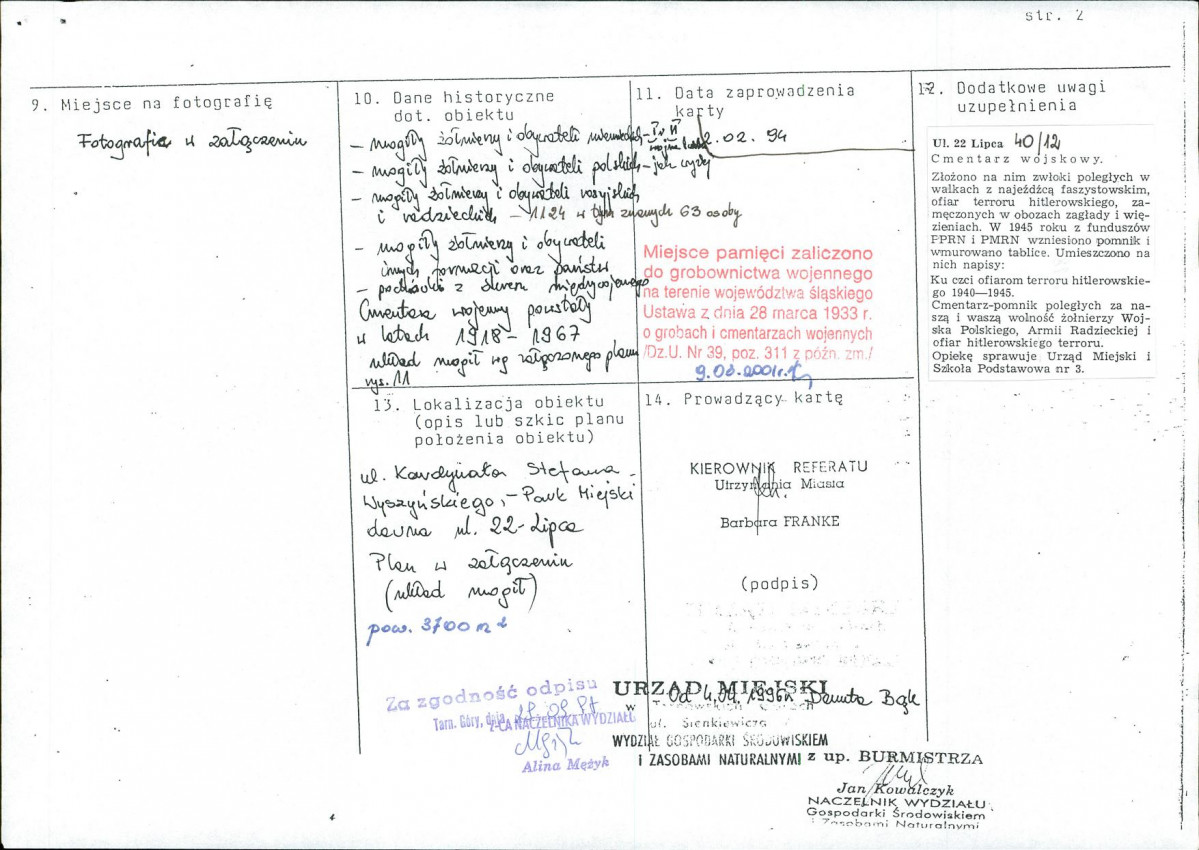 str. 2
9. Miejsce na fotografię
Fotografia w załączeniu
10. Dane historyczne
dot. obiektu
– mogiły żołnierzy i obywateli niemieckich – I i II
wojna
– mogiły żołnierzy i obywateli polskich – jak wyżej
– mogiły żołnierzy i obywateli rosyjskich
i radzieckich – 1124 w tym znanych 63 osoby
– mogiły żołnierzy i obywateli
innych formacji oraz państw
– pochówki z okresu międzywojennego
Cmentarz wojenny powstały
w latach 1918 – 1967
układ mogił wg załączonego planu
rys. 11
11. Data zaprowadzenia
karty
2.02. 94
Miejsce pamięci zaliczono
do grobownictwa wojennego
na terenie województwa śląskiego
Ustawa z dnia 28 marca 1933 r.
o grobach i cmentarzach wojennych
/Dz.U. Nr 39, poz. 311 z późn. zm./
12. Dodatkowe uwagi
uzupełnienia
Ul. 22 Lipca 40/12
Cmentarz wojskowy.
Złożono na nim zwłoki poległych w
walkach z najeźdźcą faszystowskim,
ofiar terroru hitlerowskiego, za-
męczonych w obozach zagłady i wię-
zieniach. W 1945 roku z funduszów
PPRN i PMRN wzniesiono pomnik i
wmurowano tablice. Umieszczono na
nich napisy:
Ku czci ofiarom terroru hitlerowskie-
go 1940—1945.
Cmentarz-pomnik poległych za na-
szą i waszą wolność żołnierzy Woj-
ska Polskiego, Armii Radzieckiej i
ofiar hitlerowskiego terroru.
Opiekę sprawuje Urząd Miejski i
Szkoła Podstawowa nr 3.
13. Lokalizacja obiektu
(opis lub szkic planu
położenia obiektu)
ul. Kardynała Stefana
Wyszyńskiego, – Park Miejski
dawna ul. 22-Lipca
Plan w załączeniu
(układ mogił)
pow. 3700 m²
14. Prowadzący kartę
KIEROWNIK REFERATU
Utrzymania Miasta
Barbara FRANKE
(podpis)
Za zgodność odpisu
Tarn. Góry, dnia
Z-CA NACZELNIKA WYDZIAŁU
Alina Mężyk
URZĄD MIEJSKI
Od 4.04.1996r Danuta Bąk
w Tarnowskich Górach
ul. Sienkiewicza
WYDZIAŁ GOSPODARKI ŚRODOWISKIEM
I ZASOBAMI NATURALNYMI
z up. BURMISTRZA
Jan Kowalczyk
NACZELNIK WYDZIAŁU
Gospodarki Środowiskiem
i Zasobami Naturalnymi